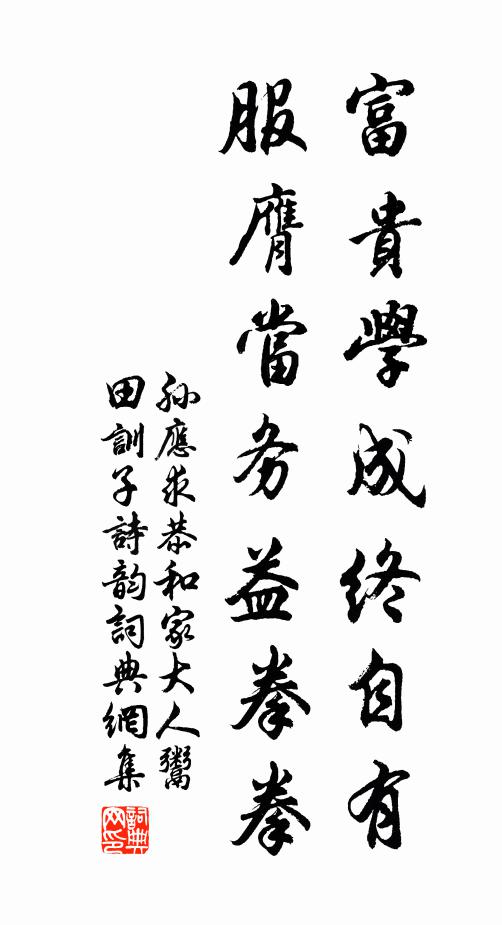 富貴學成終自有
服膺當务益拳拳
孫應求恭和家大人鬻
田訓子詩韵詞典網集
詞典
网印